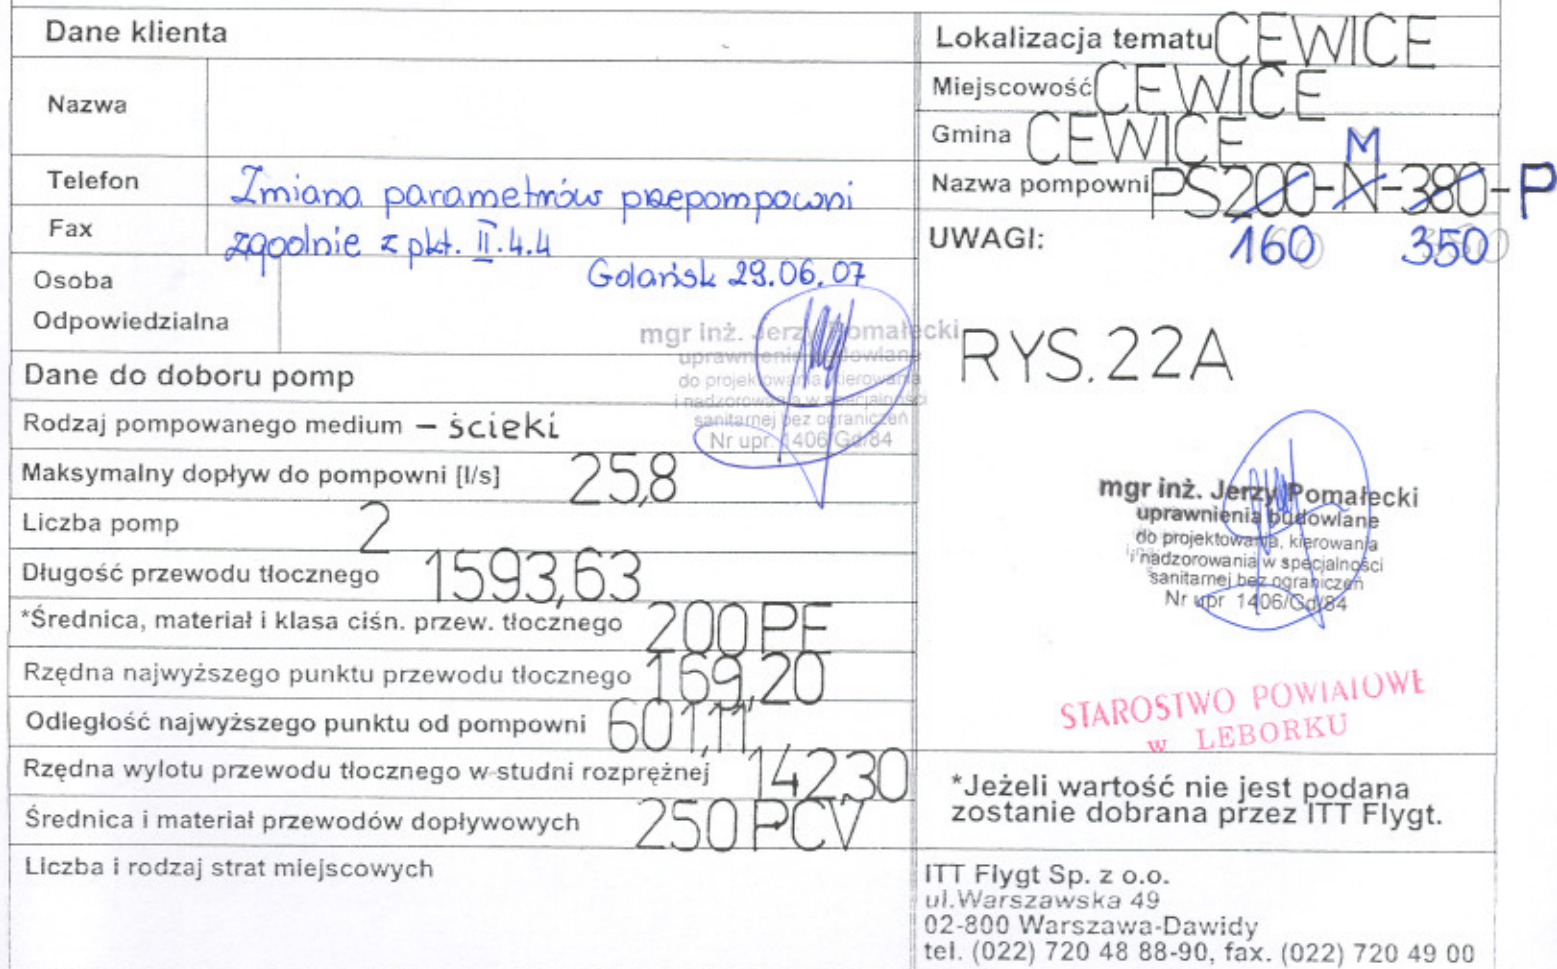 Dane klienta
Nazwa
Telefon
Zmiana parametrów przepompowni
Fax
zgodnie z pkt. II.4.4
Gdańsk 29.06.07
Osoba
Odpowiedzialna
mgr inż. Jerzy Pomałecki
uprawnienia budowlane
do projektowania, kierowania
i nadzorowania w specjalności
sanitarnej bez ograniczeń
Nr upr. 1406/Gd/84
Dane do doboru pomp
Rodzaj pompowanego medium – ścieki
Maksymalny dopływ do pompowni [l/s] 25,8
Liczba pomp 2
Długość przewodu tłocznego 1593,63
*Średnica, materiał i klasa ciśn. przew. tłocznego 200 PE
Rzędna najwyższego punktu przewodu tłocznego 169,20
Odległość najwyższego punktu od pompowni 601,11
Rzędna wylotu przewodu tłocznego w studni rozprężnej 142,30
Średnica i materiał przewodów dopływowych 250 PCV
Liczba i rodzaj strat miejscowych
Lokalizacja tematu CEWICE
Miejscowość CEWICE
Gmina CEWICE
M
Nazwa pompowni PS200-N-380-P
UWAGI: 160 350
RYS.22A
mgr inż. Jerzy Pomałecki
uprawnienia budowlane
do projektowania, kierowania
i nadzorowania w specjalności
sanitarnej bez ograniczeń
Nr upr 1406/Gd/84
STAROSTWO POWIATOWE
w LEBORKU
*Jeżeli wartość nie jest podana
zostanie dobrana przez ITT Flygt.
ITT Flygt Sp. z o.o.
ul.Warszawska 49
02-800 Warszawa-Dawidy
tel. (022) 720 48 88-90, fax. (022) 720 49 00